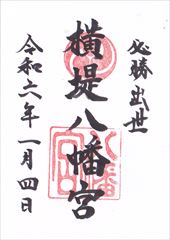 必勝出世
横堤八幡宮
令和六年一月四日